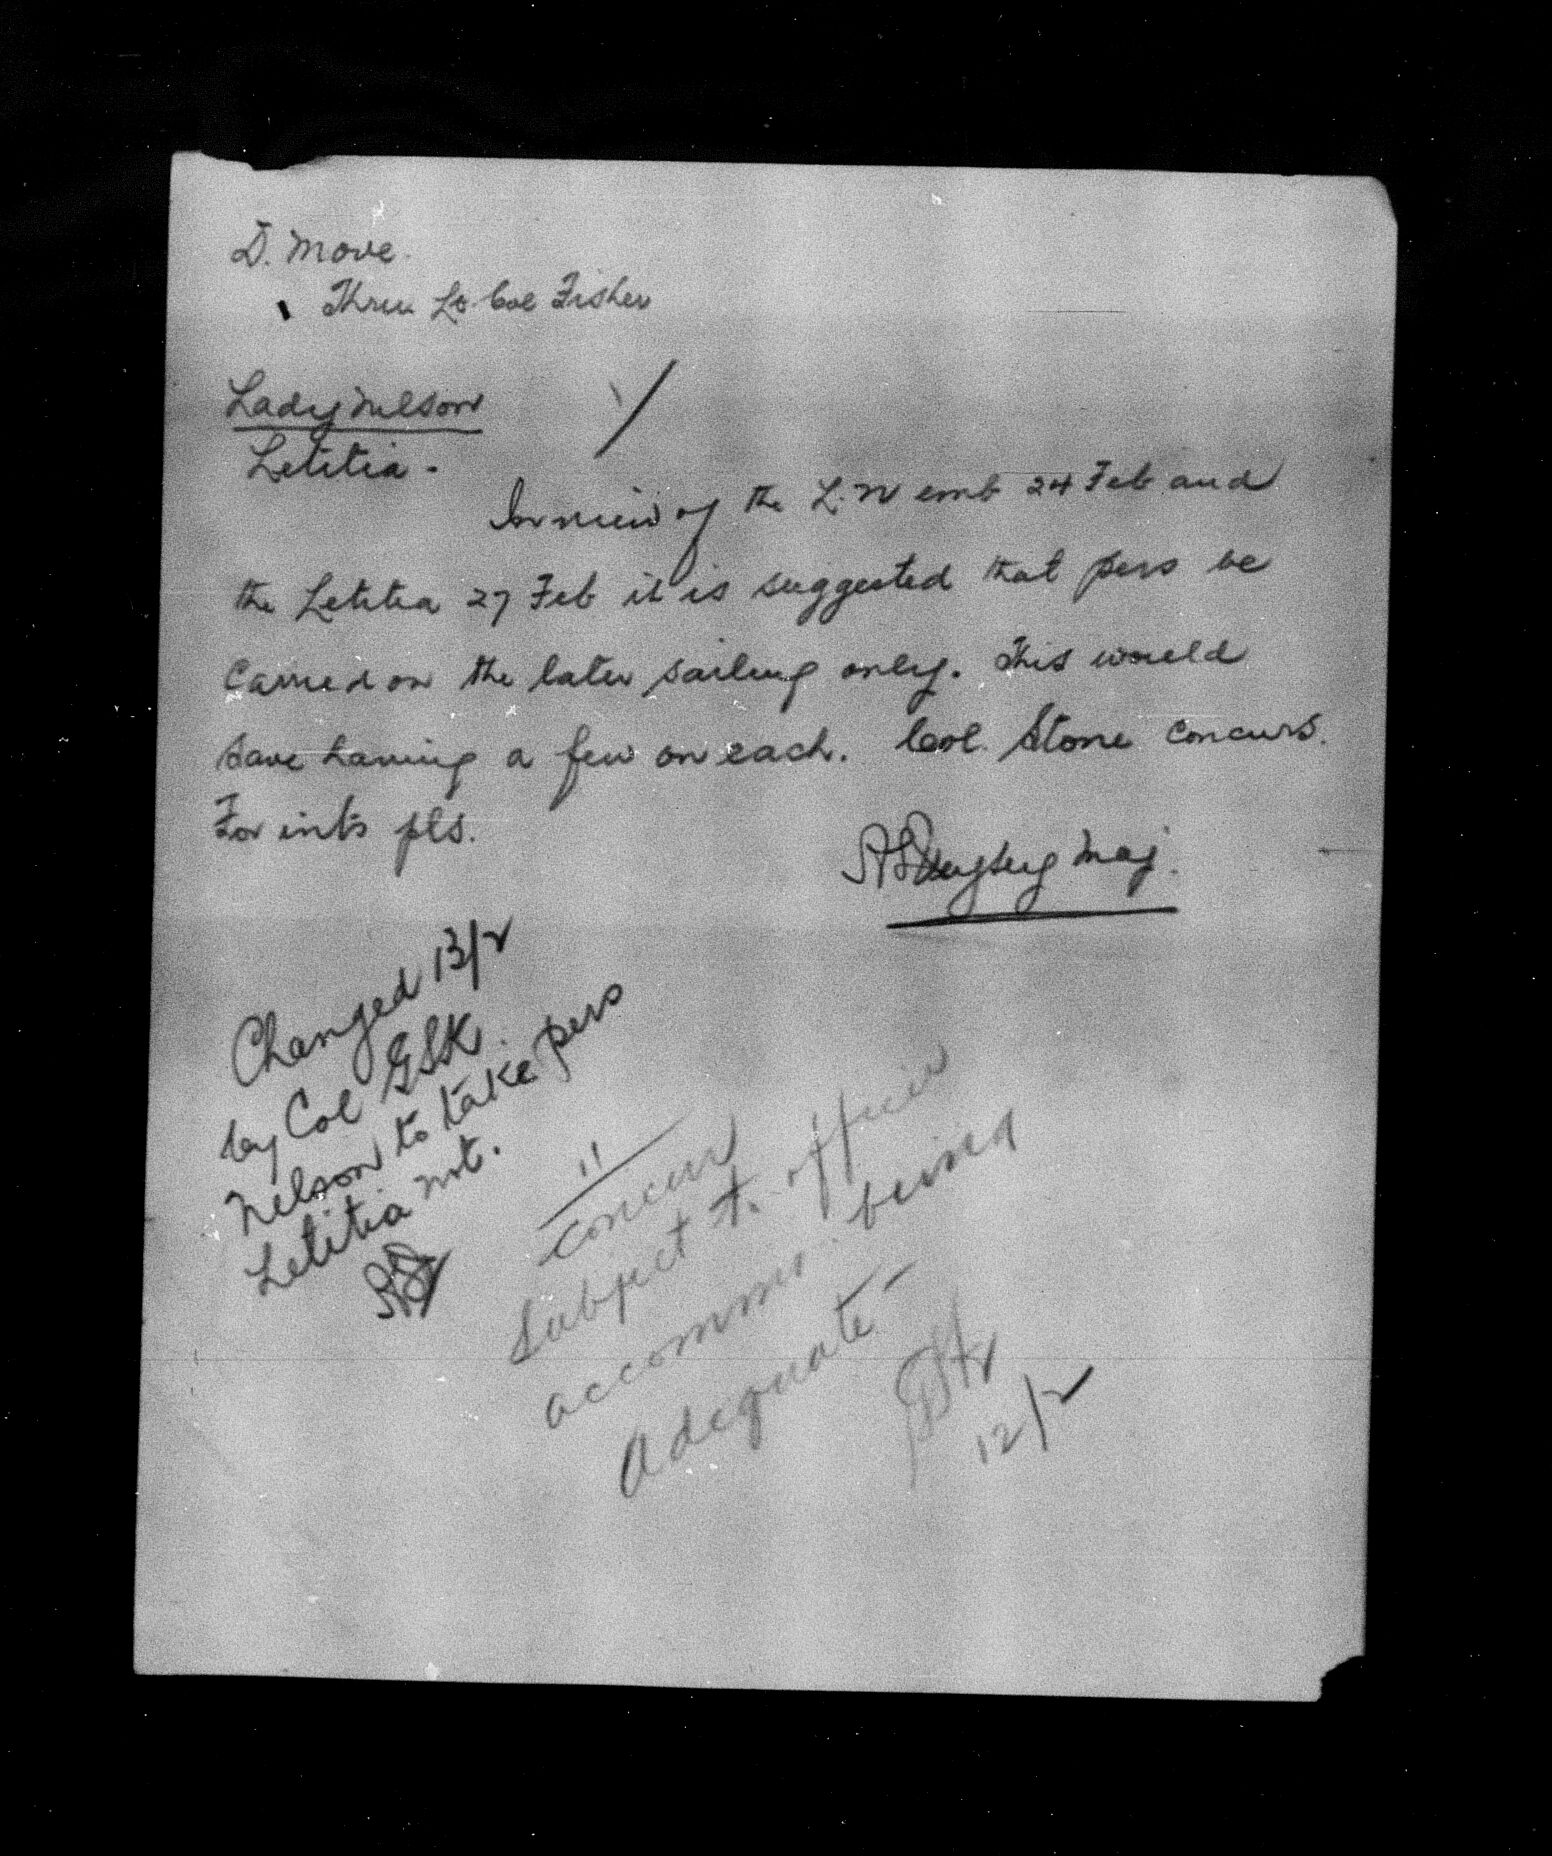 D. Move.
Thru Lt Col Fisher
Lady Nelson
Letitia.
In view of the L.N emb 24 Feb and
the Letitia 27 Feb it is suggested that pers be
carried on the later sailing only. This would
save having a few on each. Col. Stone concurs.
For ints pls.
Maj.
Changed 13/2
by Col GSK.
Nelson to take pers
Letitia not.
"
concur
subject to officer
accomm. being
adequate -
12/2